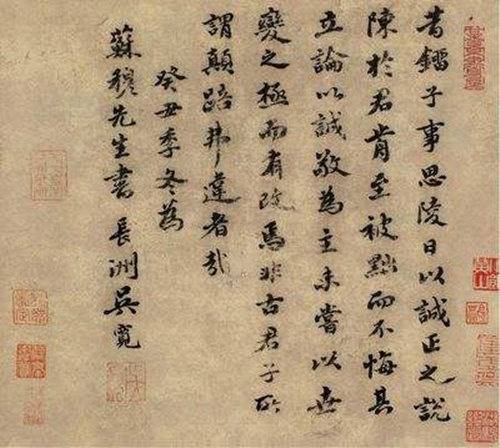 昔鐂子事思陵日以誠正之說
陳於君前至被黜而不悔其
立論以誠敬為主未嘗以世
變之極而有改焉非古君子所
謂顛踣弗違者哉
癸丑季冬為
蘇穆先生書 長洲吳寬